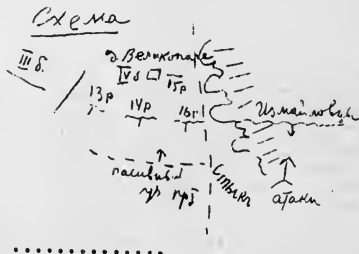 Схема
д Великопаре
III б.
IV б 15р
13р 14р 16р
Измайловцы
пасивный
уч
Стыкъ
атаки